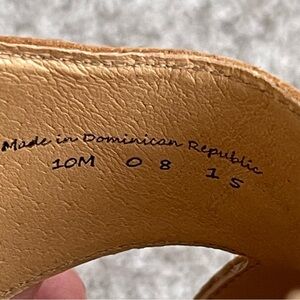 Made in Dominican Republic
10M 0 8 1 5